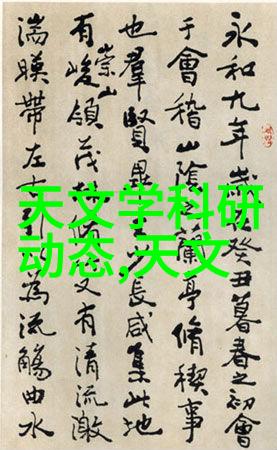 永和九年歲癸丑暮春之初會
于會稽山陰蘭亭脩稧事
也羣賢畢少長咸集此地
有崇山峻領茂林又有清流激
湍暎帶左右引為流觴曲水
天文学科研
动态,天文